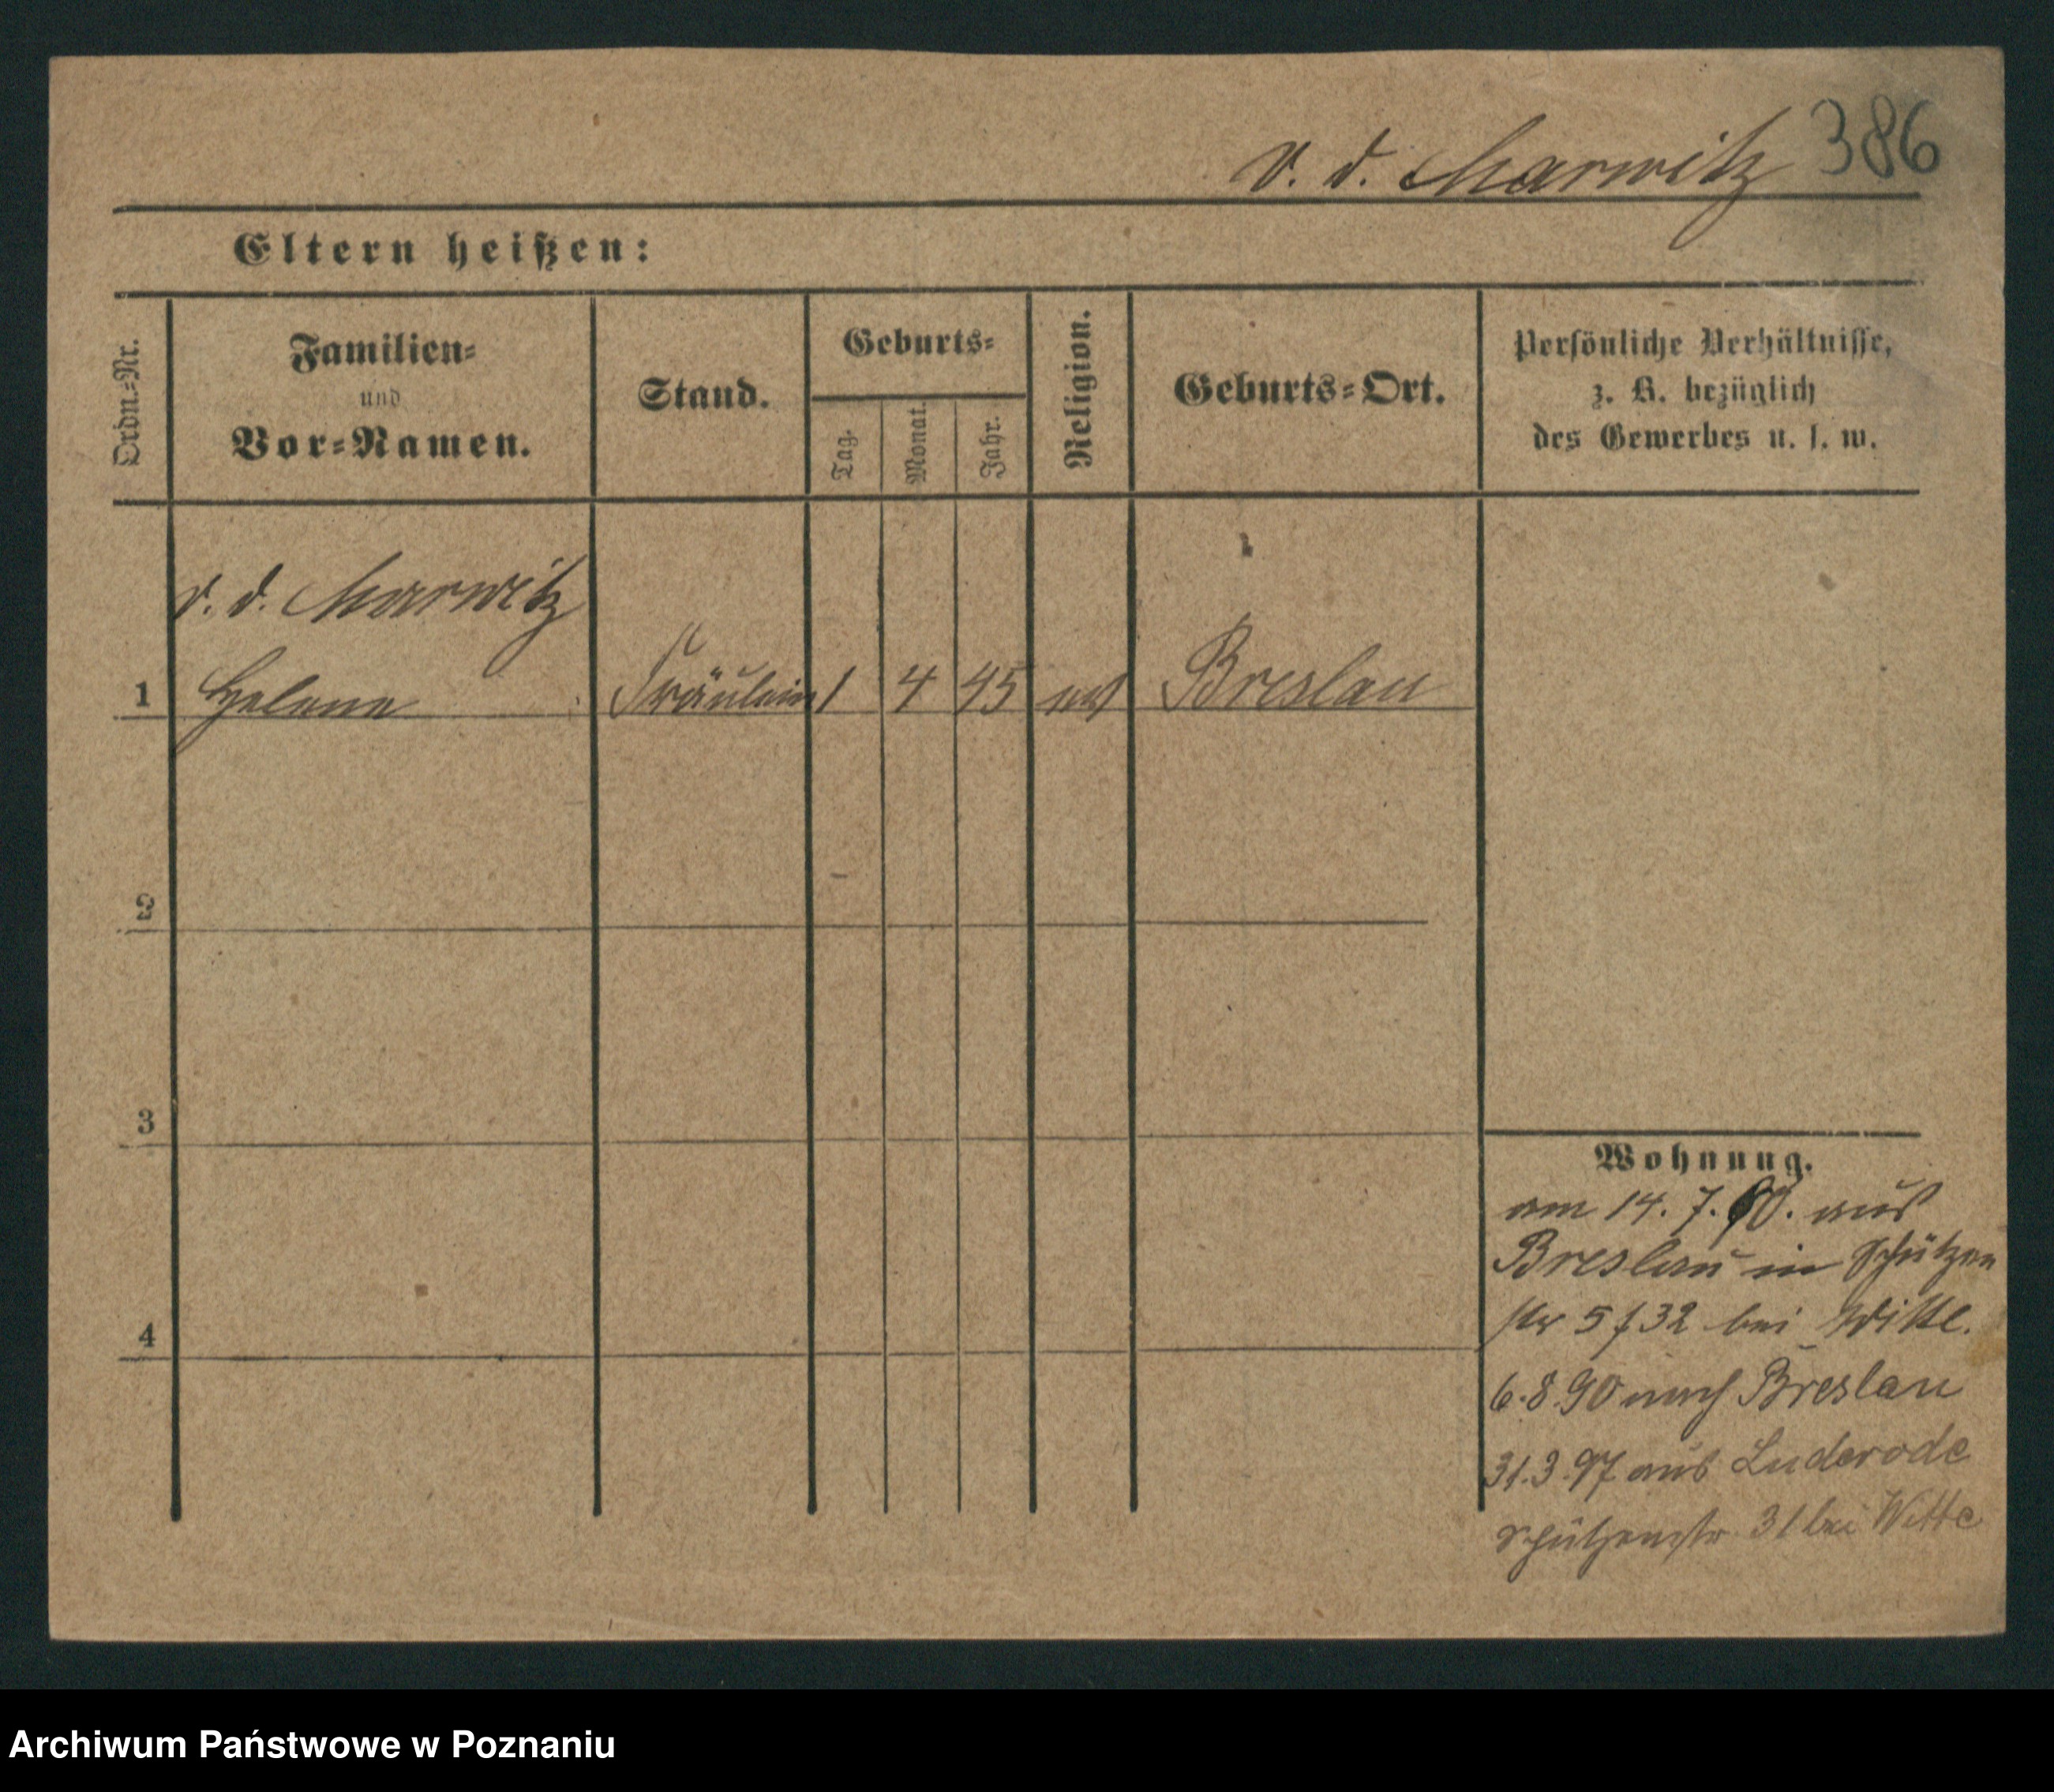 v. d. Marwitz 386
Eltern heißen:
Ordn.-Nr.
Familien-
und
Vor-Namen.
Stand.
Geburts-
Tag.
Monat.
Jahr.
Religion.
Geburts-Ort.
Persönliche Verhältnisse,
z. B. bezüglich
des Gewerbes u. s. w.
v. d. Marwitz
1 Helene Fräulein 1 4 45 ev Breslau
2
3
4
Wohnung.
am 14. 7. 90. aus
Breslau in Schützen
str 5/32 bei Witte.
6.8.90 nach Breslau
31.3.97 aus Luderode
Schützenstr 31 bei Witte
Archiwum Państwowe w Poznaniu